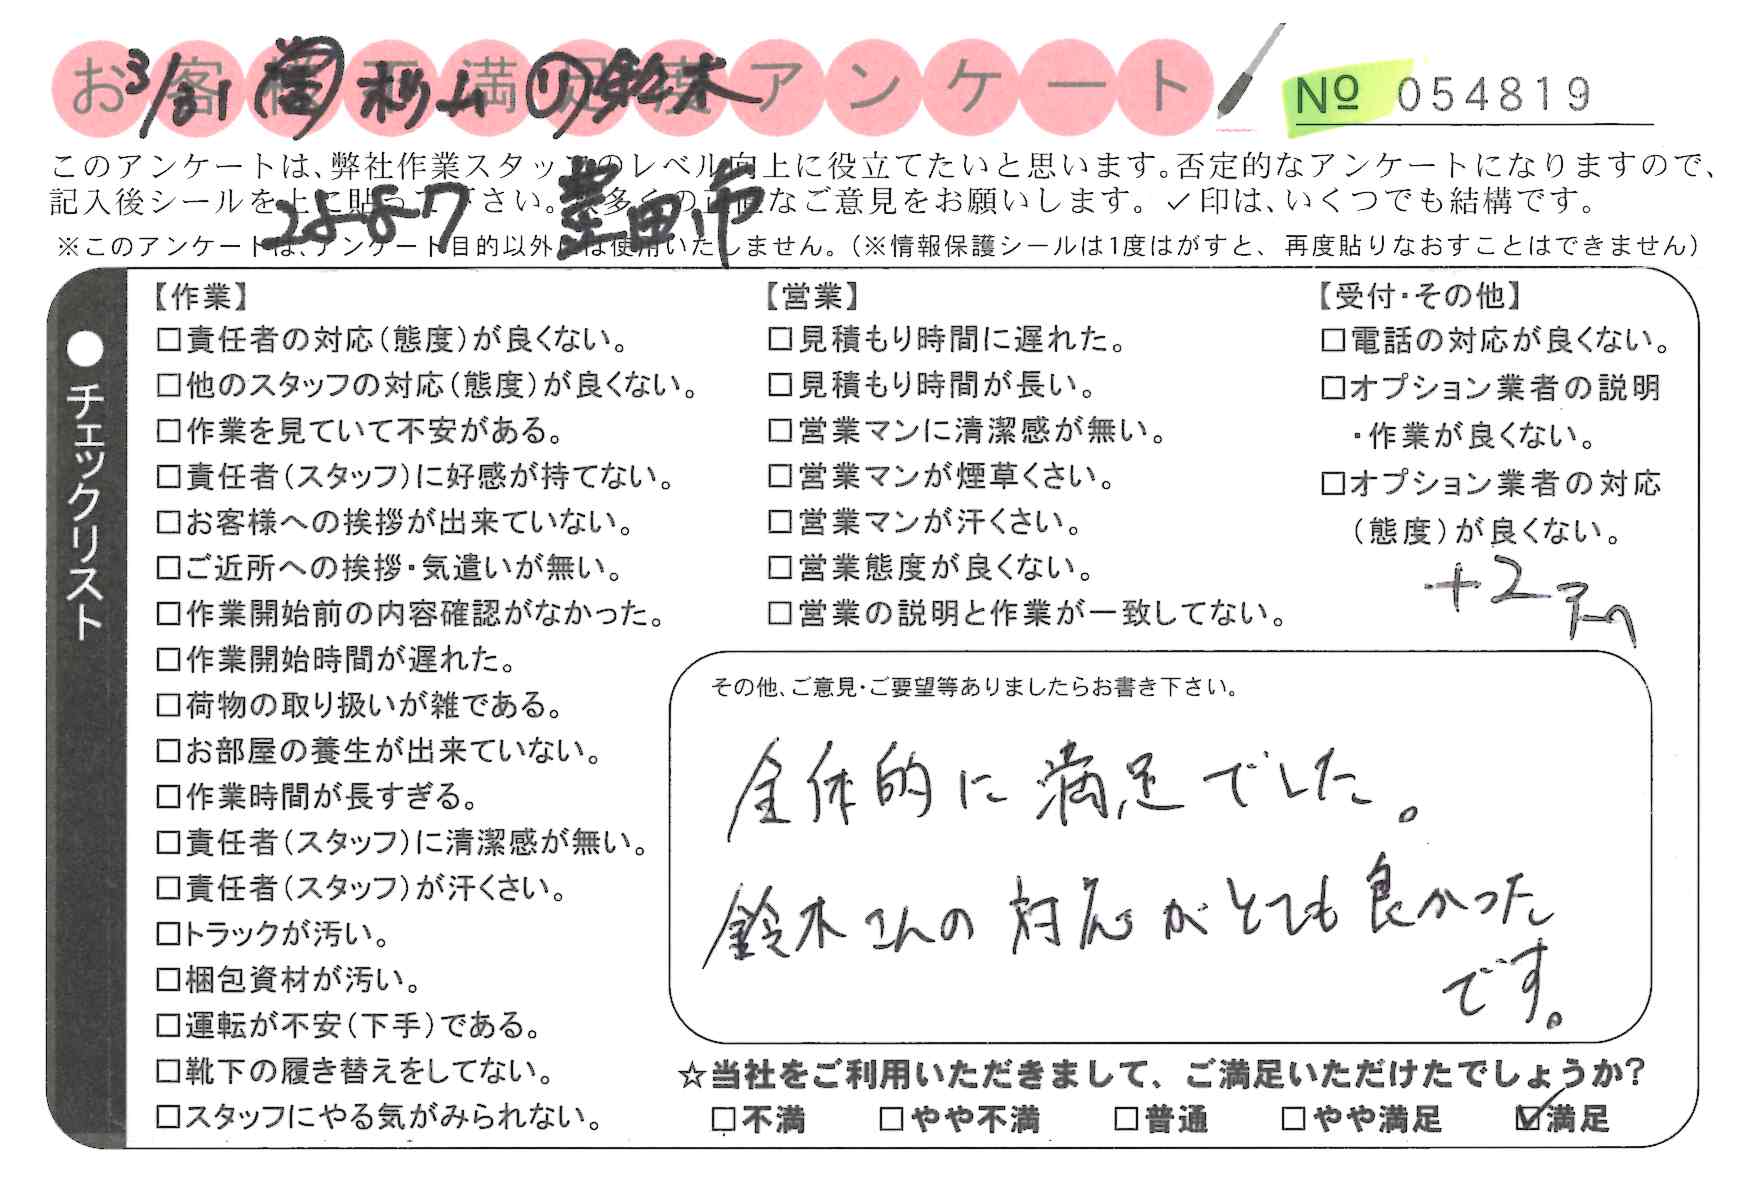 お客様不満足度アンケート
3/31 ㊂ 杉山 リ 鈴木
№ 054819
このアンケートは、弊社作業スタッフのレベル向上に役立てたいと思います。否定的なアンケートになりますので、
記入後シールを上に貼って下さい。数多くの正直なご意見をお願いします。✓印は、いくつでも結構です。
豊田市
※このアンケートは、アンケート目的以外には使用いたしません。(※情報保護シールは1度はがすと、再度貼りなおすことはできません)
●チェックリスト
【作業】
□責任者の対応(態度)が良くない。
□他のスタッフの対応(態度)が良くない。
□作業を見ていて不安がある。
□責任者(スタッフ)に好感が持てない。
□お客様への挨拶が出来ていない。
□ご近所への挨拶・気遣いが無い。
□作業開始前の内容確認がなかった。
□作業開始時間が遅れた。
□荷物の取り扱いが雑である。
□お部屋の養生が出来ていない。
□作業時間が長すぎる。
□責任者(スタッフ)に清潔感が無い。
□責任者(スタッフ)が汗くさい。
□トラックが汚い。
□梱包資材が汚い。
□運転が不安(下手)である。
□靴下の履き替えをしてない。
□スタッフにやる気がみられない。
【営業】
□見積もり時間に遅れた。
□見積もり時間が長い。
□営業マンに清潔感が無い。
□営業マンが煙草くさい。
□営業マンが汗くさい。
□営業態度が良くない。
□営業の説明と作業が一致してない。
【受付・その他】
□電話の対応が良くない。
□オプション業者の説明
・作業が良くない。
□オプション業者の対応
(態度)が良くない。
+2
その他、ご意見・ご要望等ありましたらお書き下さい。
全体的に満足でした。
鈴木さんの対応がとても良かった
です。
☆当社をご利用いただきまして、ご満足いただけたでしょうか?
□不満 □やや不満 □普通 □やや満足 ☑満足